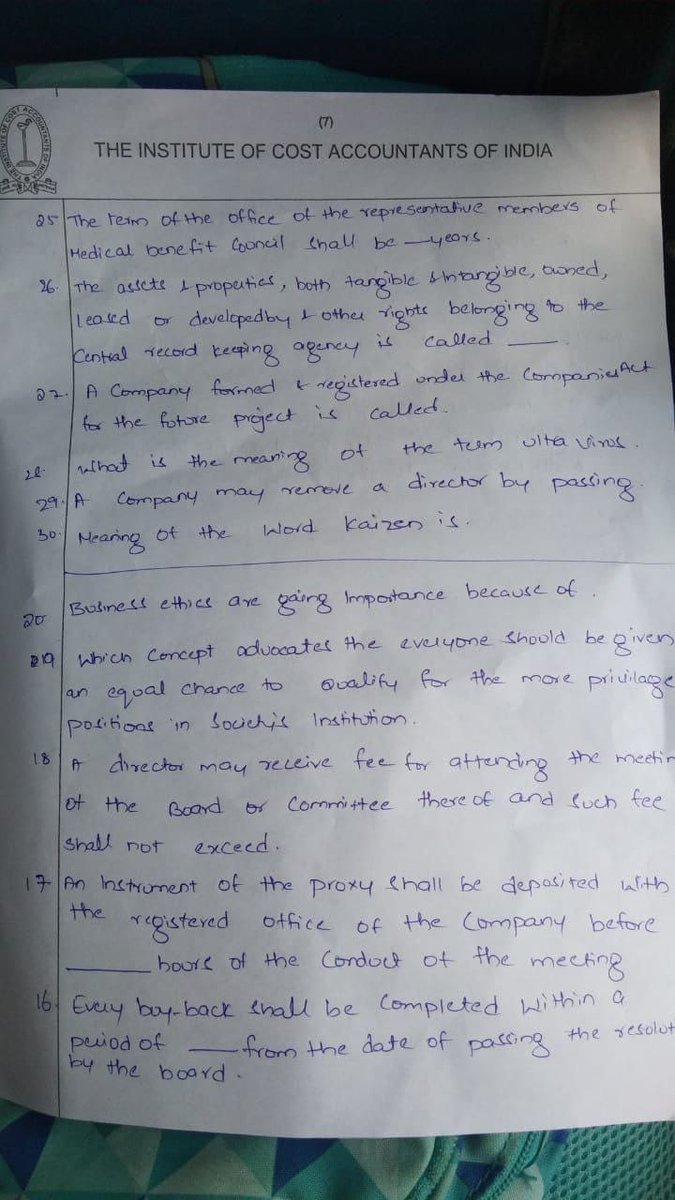 (7)
THE INSTITUTE OF COST ACCOUNTANTS OF INDIA
25 The term of the office of the representative members of
Medical benefit Council shall be — years.
26. The assets & properties, both tangible & Intangible, owned,
leased or developed by & other rights belonging to the
Central record keeping agency is called ___.
27. A Company formed & registered under the Companies Act
for the future project is called.
28. What is the meaning of the term ultra virus.
29. A Company may remove a director by passing.
30. Meaning of the Word Kaizen is.
20 Business ethics are gaing Importance because of.
19 Which Concept advocates the everyone should be given
an equal chance to Qualify for the more privilage
positions in Society's Institution.
18 A director may receive fee for attending the meetin
of the Board or Committee there of and such fee
shall not exceed.
17 An Instrument of the proxy shall be deposited with
the registered office of the Company before
___ hours of the Conduct of the meeting
16. Every buy-back shall be Completed within a
period of ___ from the date of passing the resolut
by the board.